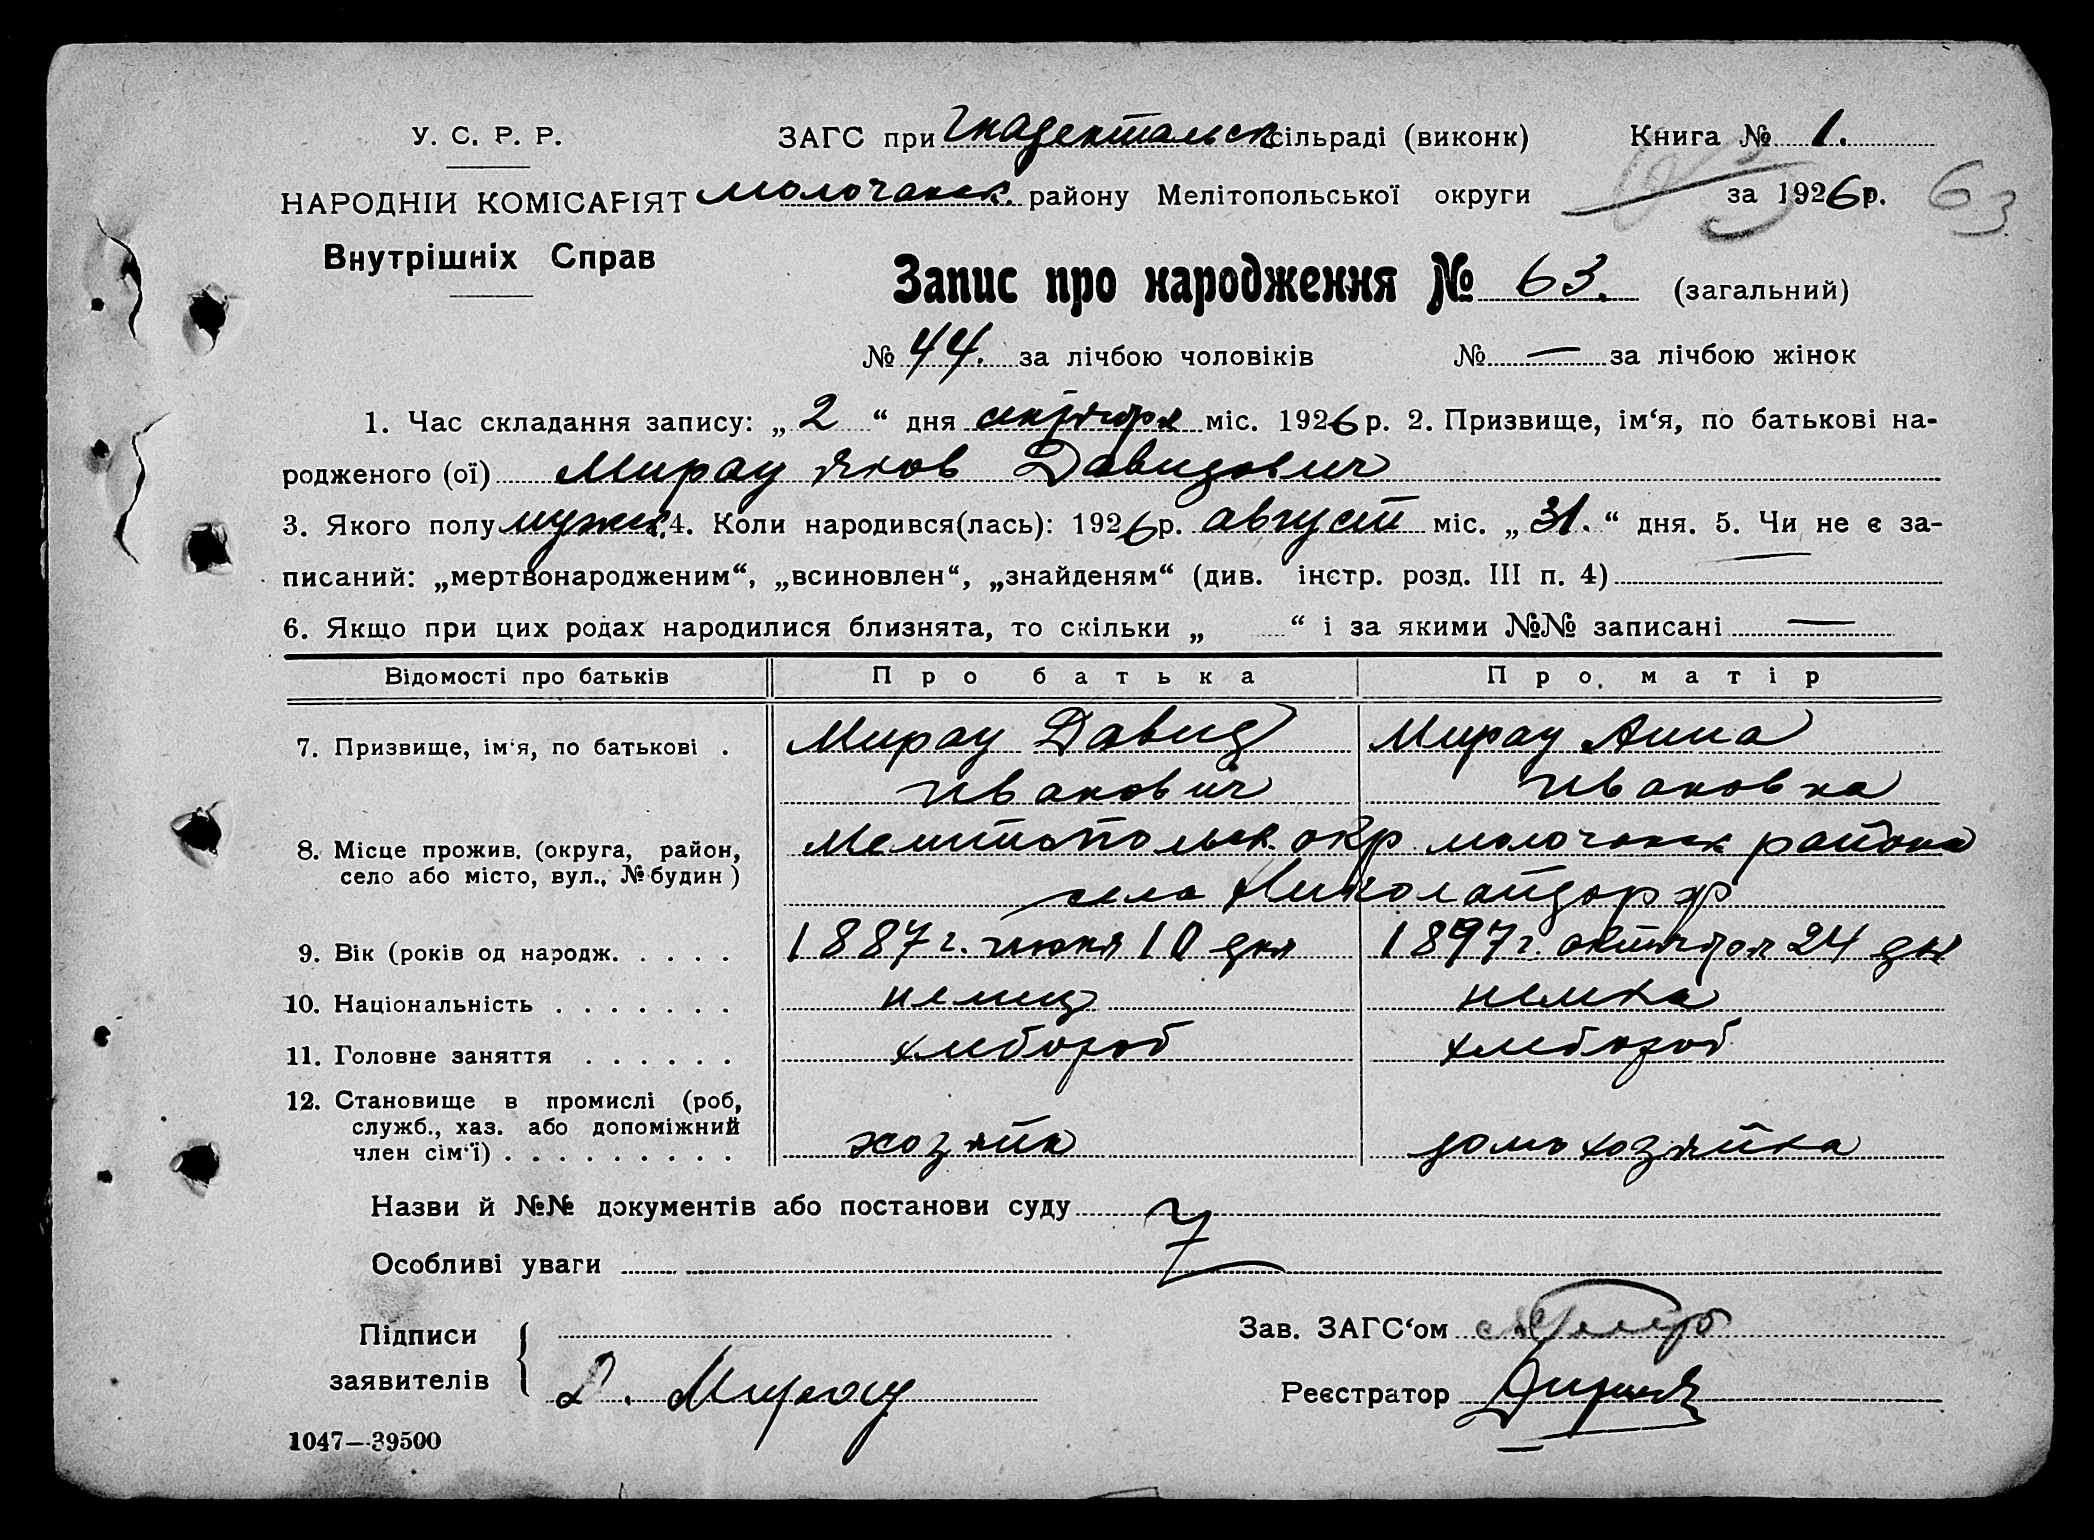 У. С. Р. Р.
ЗАГС при Гнадентальск сільраді (виконк) Книга № 1.
НАРОДНІЙ КОМІСАРІЯТ Молочанск. району Мелітопольської округи за 1926 р. 63
Внутрішніх Справ
Запис про народження № 63. (загальний)
№ 44. за лічбою чоловіків № — за лічбою жінок
1. Час складання запису: „ 2 “ дня сентября міс. 1926 р. 2. Призвище, ім‘я, по батькові на-
родженого (ої) Мирау Яков Давидович
3. Якого полу мужск. 4. Коли народився(лась): 1926 р. август міс. „ 31. “ дня. 5. Чи не є за-
писаний: „мертвонародженим“, „всиновлен“, „знайденям“ (див. інстр. розд. III п. 4) —
6. Якщо при цих родах народилися близнята, то скільки „ “ і за якими №№ записані —
Відомості про батьків Про батька Про матір
7. Призвище, ім‘я, по батькові . Мирау Давид Мирау Анна
Иванович Ивановна
8. Місце прожив. (округа, район, Мелитопольск. окр. молочанск района
село або місто, вул., № будин ) села Николайдорф
9. Вік (років од народж. . . . . 1887 г. июня 10 дня 1897 г. октября 24 дня
10. Національність . . . . . . . немец немка
11. Головне заняття . . . . . . хлебороб хлебороб
12. Становище в промислі (роб,
служб., хаз. або допоміжний
член сім‘ї) . . . . . . . . . хозяин домохозяйка
Назви й №№ документів або постанови суду
Особливі уваги
Підписи Зав. ЗАГС‘ом
заявителів Д. Мирау Реєстратор
1047—39500